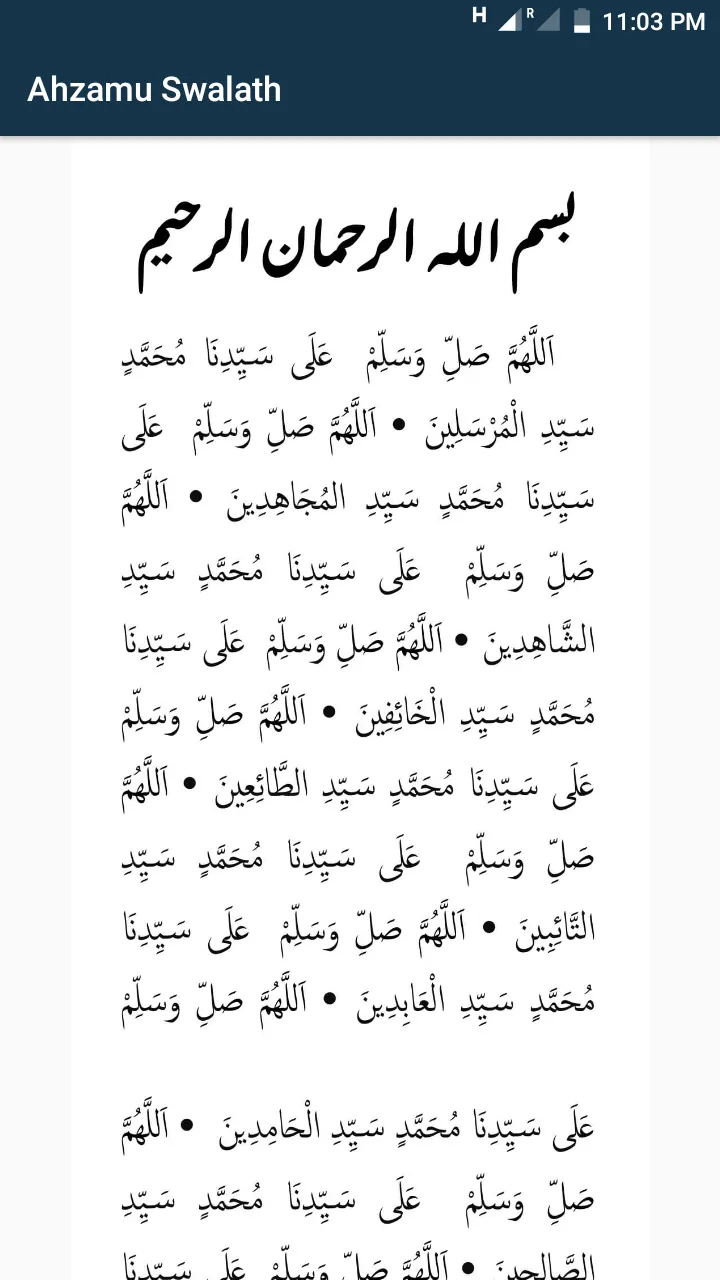 H R 11:03 PM
Ahzamu Swalath
بسم الله الرحمان الرحيم
اَللَّهُمَّ صَلِّ وَسَلِّمْ عَلَى سَيِّدِنَا مُحَمَّدٍ
سَيِّدِ الْمُرْسَلِينَ • اَللَّهُمَّ صَلِّ وَسَلِّمْ عَلَى
سَيِّدِنَا مُحَمَّدٍ سَيِّدِ المُجَاهِدِينَ • اَللَّهُمَّ
صَلِّ وَسَلِّمْ عَلَى سَيِّدِنَا مُحَمَّدٍ سَيِّدِ
الشَّاهِدِينَ • اَللَّهُمَّ صَلِّ وَسَلِّمْ عَلَى سَيِّدِنَا
مُحَمَّدٍ سَيِّدِ الْخَائِفِينَ • اَللَّهُمَّ صَلِّ وَسَلِّمْ
عَلَى سَيِّدِنَا مُحَمَّدٍ سَيِّدِ الطَّائِعِينَ • اَللَّهُمَّ
صَلِّ وَسَلِّمْ عَلَى سَيِّدِنَا مُحَمَّدٍ سَيِّدِ
التَّائِبِينَ • اَللَّهُمَّ صَلِّ وَسَلِّمْ عَلَى سَيِّدِنَا
مُحَمَّدٍ سَيِّدِ الْعَابِدِينَ • اَللَّهُمَّ صَلِّ وَسَلِّمْ
عَلَى سَيِّدِنَا مُحَمَّدٍ سَيِّدِ الْحَامِدِينَ • اَللَّهُمَّ
صَلِّ وَسَلِّمْ عَلَى سَيِّدِنَا مُحَمَّدٍ سَيِّدِ
الصَّالِحِينَ • اَللَّهُمَّ صَلِّ وَسَلِّمْ عَلَى سَيِّدِنَا